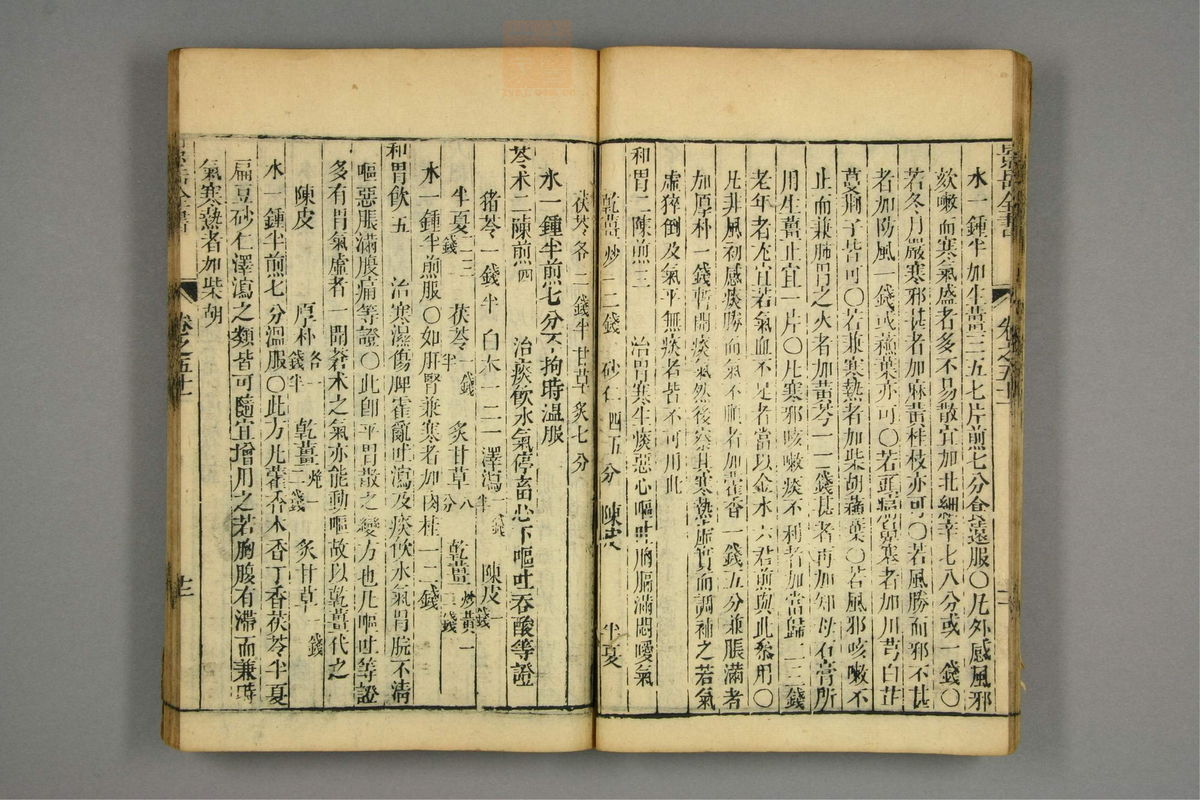 水一鍾半加生薑三五七片煎七分食遠服○凡外感風邪
欬嗽而寒氣盛者多不易散宜加北細辛七八分或一錢○
若冬月嚴寒邪甚者加麻黃桂枝亦可○若風勝而邪不甚
者加防風一錢或蘇葉亦可○若頭痛鼻寒者加川芎白芷
蔓荆子皆可○若兼寒熱者加柴胡蘇葉○若風邪咳嗽不
止而兼肺胃之火者加黃芩一二錢甚者再加知母石膏所
用生薑止宜一片○凡寒邪咳嗽痰不利者加當歸二三錢
老年者尤宜若氣血不足者當以金水六君煎與此參用○
凡非風初感痰勝而氣不順者加藿香一錢五分兼脹滿者
加厚朴一錢暫開痰氣然後察其寒熱虛實而調補之若氣
虛猝倒及氣平無痰者皆不可用此
和胃二陳煎三 治胃寒生痰惡心嘔吐胸膈滿悶噯氣
乾薑炒 二錢 砂仁四五分 陳皮 半夏
茯苓各二錢半 甘草炙七分
水一鍾半煎七分不拘時温服
苓术二陳煎四 治痰飲水氣停畜心下嘔吐吞酸等證
猪苓一錢半 白术一二 澤瀉一錢半 陳皮一錢
半夏二三錢 茯苓一錢半 炙甘草八分 乾薑炒黃一二錢
水一鍾半煎服○如肝腎兼寒者加肉桂一二錢
和胃飲五 治寒濕傷脾霍亂吐瀉及痰飲水氣胃脘不清
嘔惡脹滿腹痛等證○此卽平胃散之變方也凡嘔吐等證
多有胃氣虛者一聞蒼术之氣亦能動嘔故以乾薑代之
陳皮 厚朴各一錢半 乾薑炮一二錢 炙甘草一錢
水一鍾半煎七分溫服○此方凡藿香木香丁香茯苓半夏
扁豆砂仁澤瀉之類皆可隨宜增用之若胸腹有滯而兼時
氣寒熱者加柴胡
卷之五十一